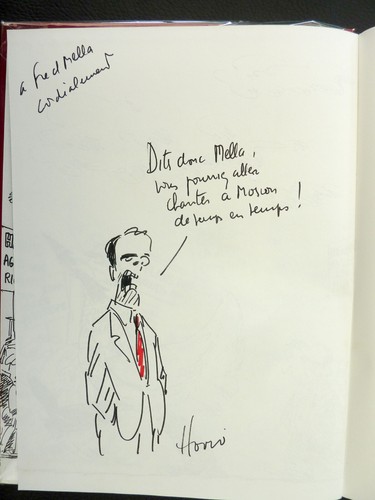 à Fred Mella
cordialement
Dits donc Mella,
vous pourriez aller
chanter à Moscou
de temps en temps !
AG
RI